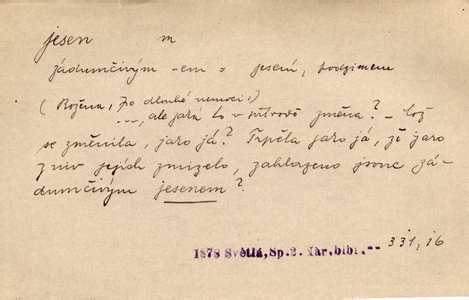 jesen m
zádumčivým -em o jeseni, podzimem
(Božena, po dlouhé nemoci:)
..., ale jaká to v nitrodě změna? – což
se změnila, jako já? Trpěla jako já, že jaro
z niv jejích zmizelo, zahlazeno jsouc zá-
dumčivým jesenem?
1878 Světlá, Sp. 2. Nár. bibl. -- 331, 16